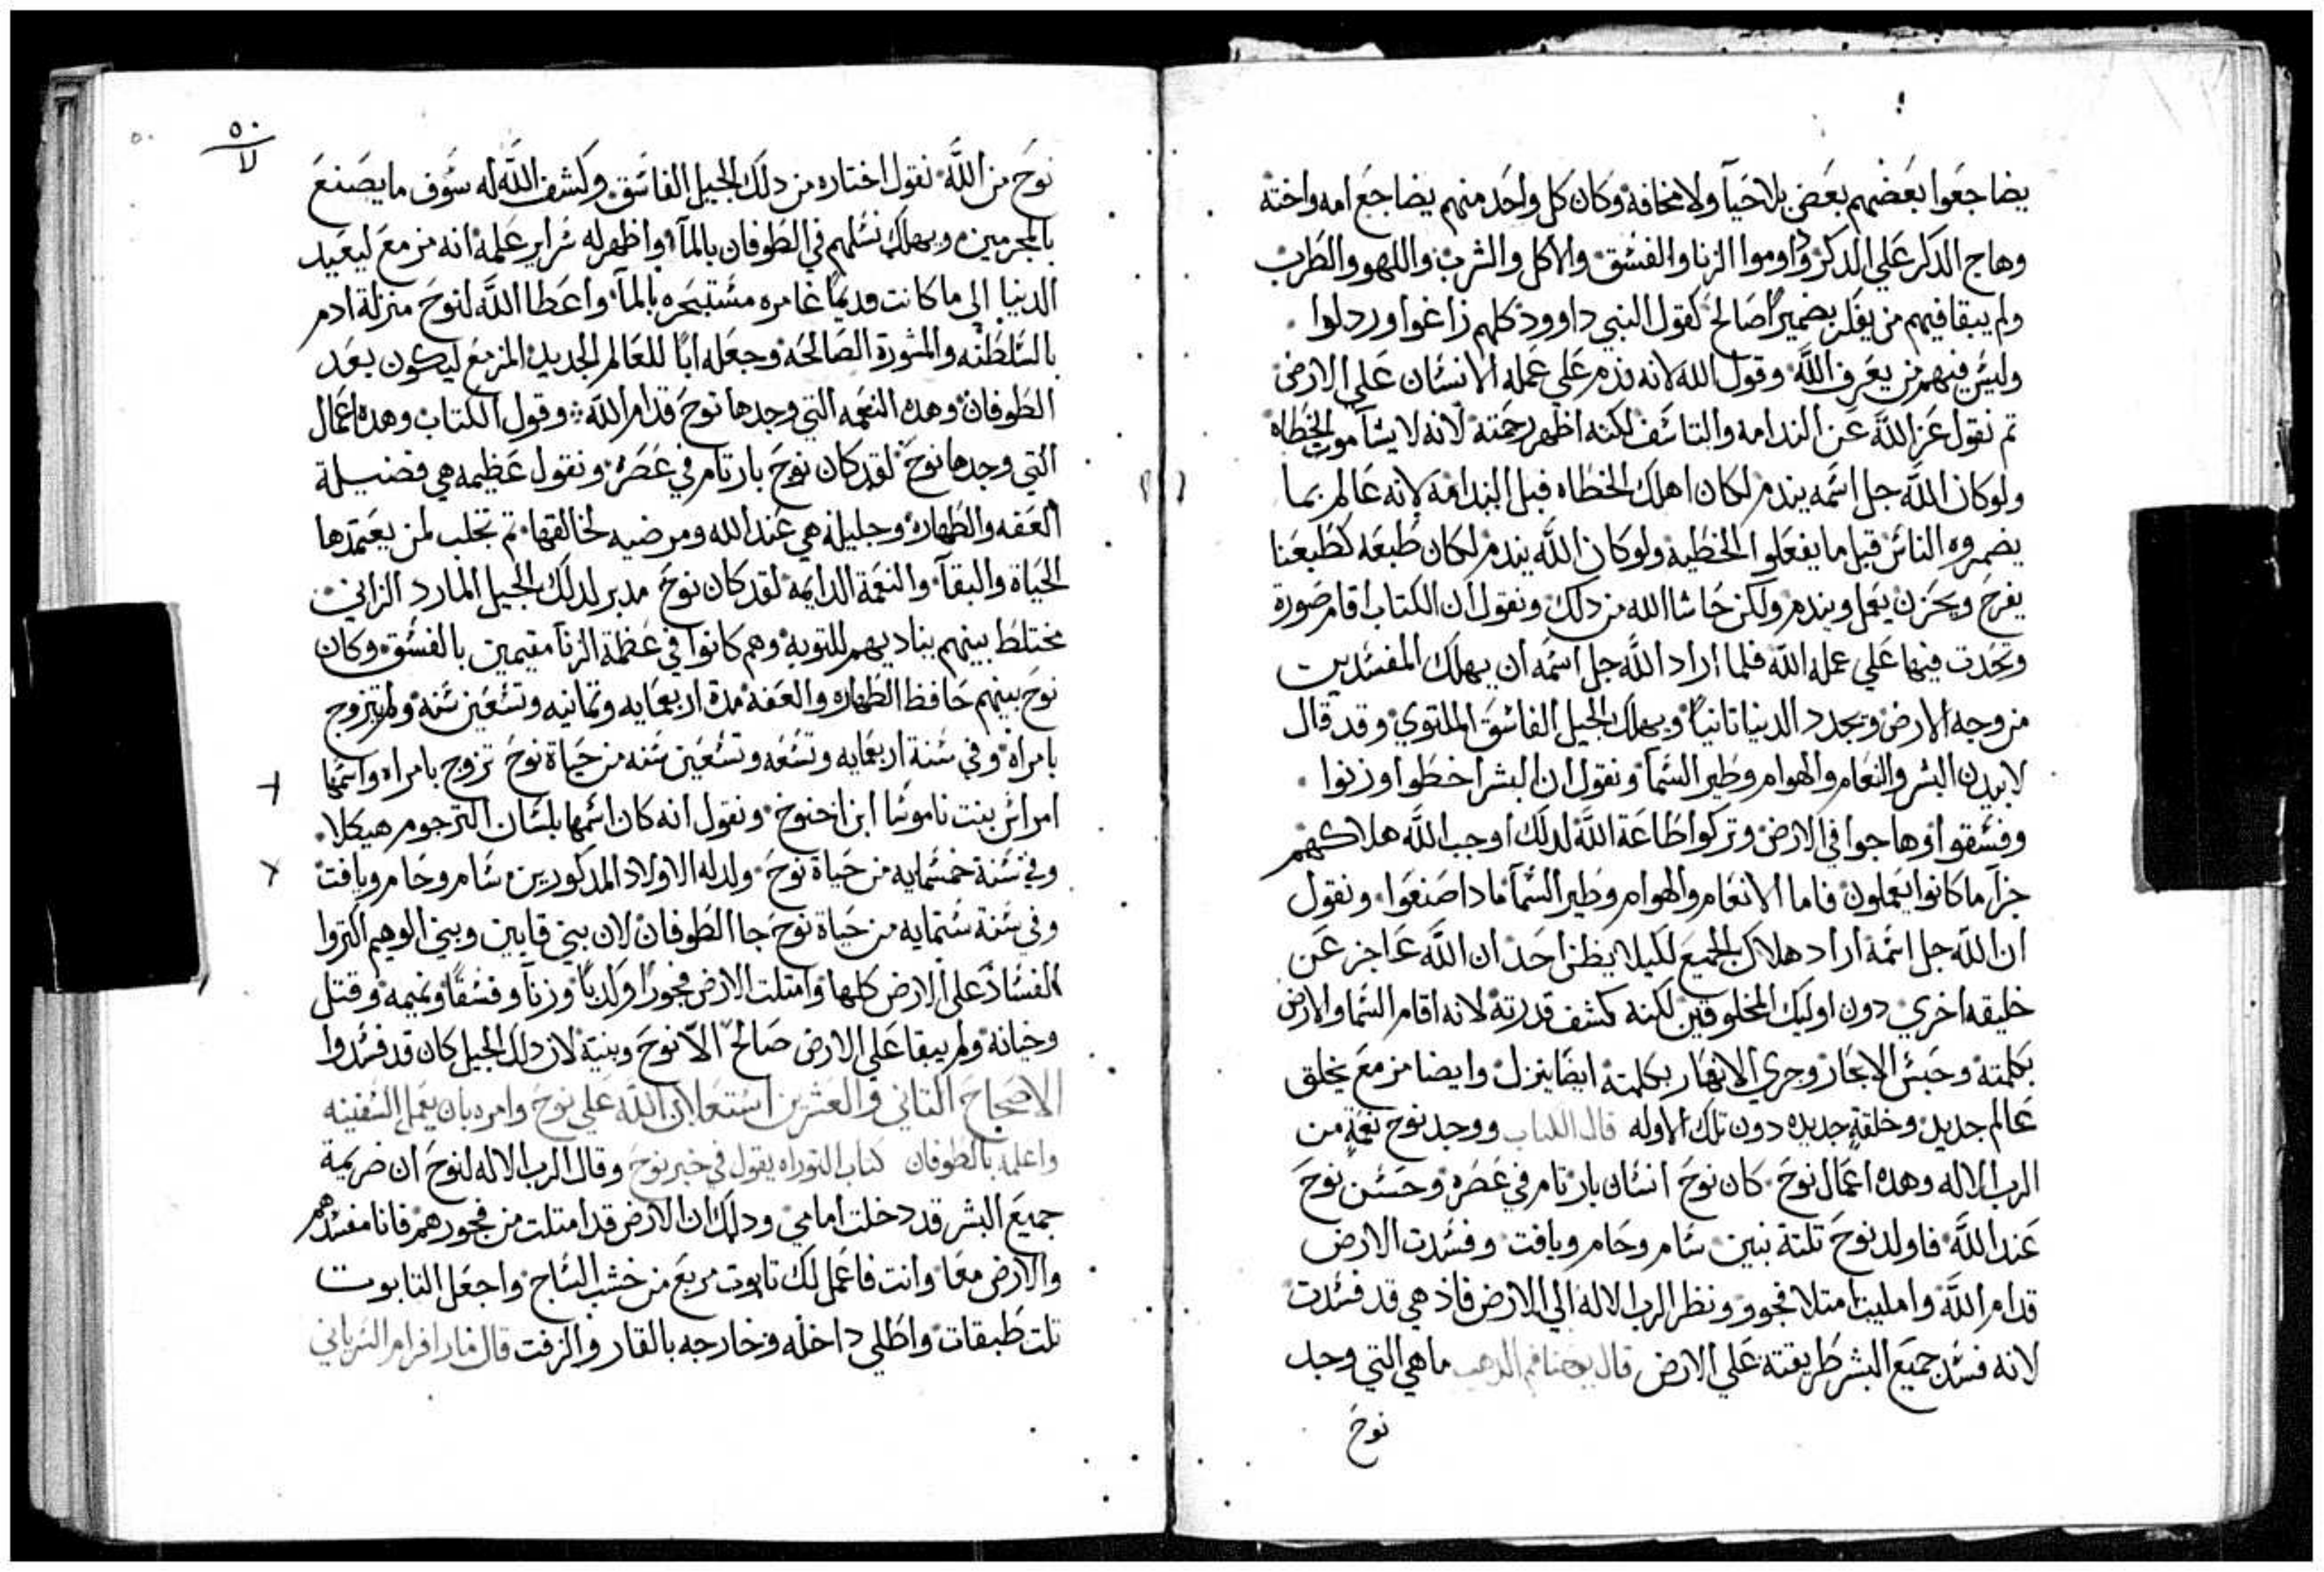 يضاجعوا بعضهم بعض بلا حيآ ولا مخافة وكان كل واحد منهم يضاجع امه واخته
وهاج الدكر علي الدكر وداوموا الزنا والفسق والاكل والشرب واللهو والطرب
ولم يبقا فيهم من يفكر بضميرًا صالح كقول النبي داوود كلهم زاغوا وردلوا
وليس فيهم من يعرف الله وقول الله لانه ندم علي عمله الانسان علي الارض
تم نقول عز الله عن الندامه والتاسف لكنه اظهر رحمته لانه لا يشآ موت الخطاه
ولو كان الله جل اسمه يندم لكان اهلك الخطاه قبل الندامة لانه عالم بما
يضمروه الناس قبل ما يفعلوا الخطيه ولو كان الله يندم لكان طبعه كطبعنا
يفرح ويحزن يعمل ويندم ولكن حاشا الله من دلك ونقول ان الكتاب اقام صورة
وتحدت فيها علي عمله الله فلما اراد الله جل اسمه ان يهلك المفسدين
من وجه الارض ويجدد الدنيا تانيًا ويهلك الجيل الفاسق الملتوي وقد قال
لابيدن البشر والنعام والهوام وطير السمآ ونقول ان البشر اخطوا وزنوا
وفسقوا وهاجوا في الارض وتركوا طاعة الله لدلك اوجب الله هلاكهم
جزآ ما كانوا يعملون فاما الانعام والهوام وطير السمآ مادا صنعوا ونقول
ان الله جل اسمه اراد هلاك الجميع لكيلا يظن احد ان الله عاجز عن
خليقه اخري دون اوليك المخلوقين لكنه كشف قدرته لانه اقام السما والارض
بكلمته وحبس الابحار وجري الانهار بكلمته ايضا ينزل وايضا مزمع يخلق
عالم جديد وخلقة جديده دون تلك الاوله قال الكتاب ووجد نوح نعمة من
الرب الاله وهده اعمال نوح كان نوح انسان بار تام في عصره وحسن نوح
عند الله فاولد نوح تلتة بنين سام وحام ويافت وفسدت الارض
قدام الله وامليت امتلا فجور ونظر الرب الاله الي الارض فاذ هي قد فسدت
لانه فسد جميع البشر طريقته علي الارض قال يوحنا فم الدهب ما هي التي وجد
نوح
٥٠
نوح من الله نقول اختاره من دلك الجيل الفاسق وكشف الله له سوف ما يصنع
بالمجرمين ويهلك نسلهم في الطوفان بالمآ واظهر له سراير علمه انه مزمع ليعيد
الدنيا الى ما كانت قديمًا غامره مستبحره بالمآ واعطا الله لنوح منزلة ادم
بالسلطنه والمشورة الصالحه وجعله ابًا للعالم الجديد المزمع ليكون بعد
الطوفان وهده النعمه التي وجدها نوح قدام الله وقول الكتاب وهده اعمال
التي وجدها نوح لقد كان نوح بار تام في عصره ونقول عظيمه هي فضيلة
العفه والطهاره وجليلة هي عند الله ومرضيه لخالقها تم تجلب لمن يعتمدها
الحياة والبقآ والنعمة الدايمه لقد كان نوح مدبر لدلك الجيل المارد الزاني
مختلط بينهم يناديهم للتوبه وهم كانوا في عظمة الزنآ مقيمين بالفسق وكان
نوح بينهم حافظ الطهاره والعفه مدة اربعمايه وتمانيه وتسعين سنه ولم يتزوج
بامراة وفي سنة اربعمايه وتسعه وتسعين سنه من حياة نوح تزوج بامراه واسمها
امراس بنت ناموسا ابن اخنوخ ونقول انه كان اسمها بلسان الترجوم هيكلا
وفي سنة خمسمايه من حياة نوح ولد له الاولاد المدكورين سام وحام ويافت
وفي سنة ستمايه من حياة نوح جا الطوفان لان بني قايين وبني الوهيم اكتروا
الفساد علي الارض كلها وامتلت الارض فجورًا وكدبًا وزنآ وفسقًا ونميمه وقتل
وخيانه ولم يبقا علي الارض صالح الا نوح وبنيه لان دلك الجيل كان قد فسدوا
الاصحاح التاني والعشرين استعلان الله علي نوح وامره بان يعمل السفينه
واعلمه بالطوفان كتاب التوراه يقول في خبر نوح وقال الرب الاله لنوح ان ضريمة
جميع البشر قد دخلت امامي ودلك ان الارض قد امتلت من فجورهم فانا مفسدهم
والارض معًا وانت فاعمل لك تابوت مربع من خشب الساج واجعل التابوت
تلت طبقات واطلي داخله وخارجه بالقار والزفت قال مار افرام السرياني